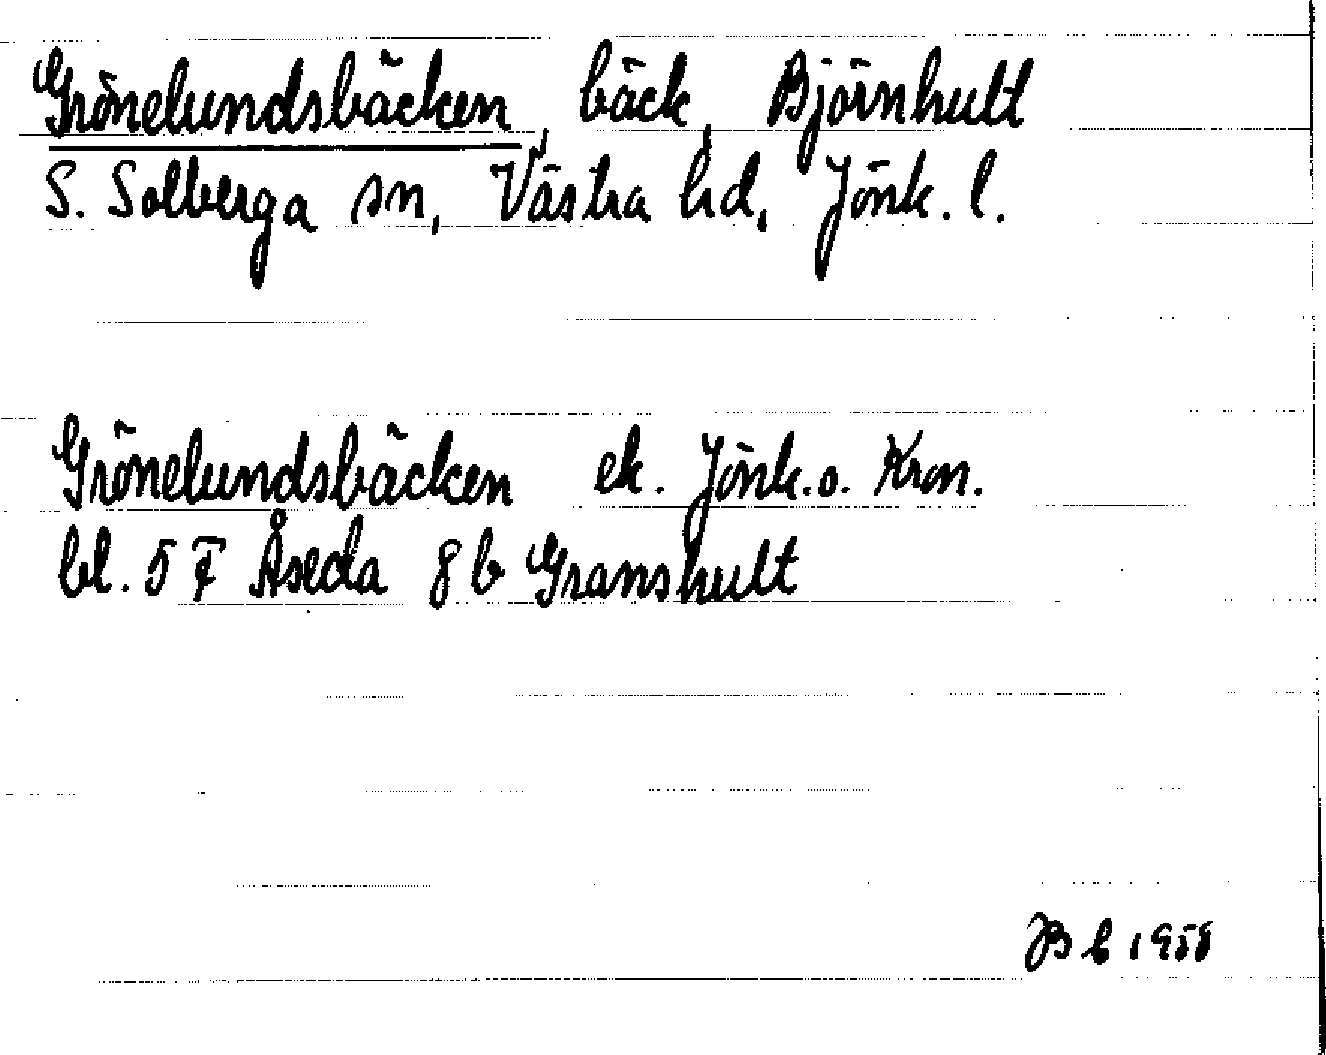 Grönelundsbäcken, bäck, Björnhult
S. Solberga sn, Västra hd, Jönk. l.
Grönelundsbäcken ek. Jönk. o. Kron.
bl. 5 F Åseda 8 b Granshult
1958